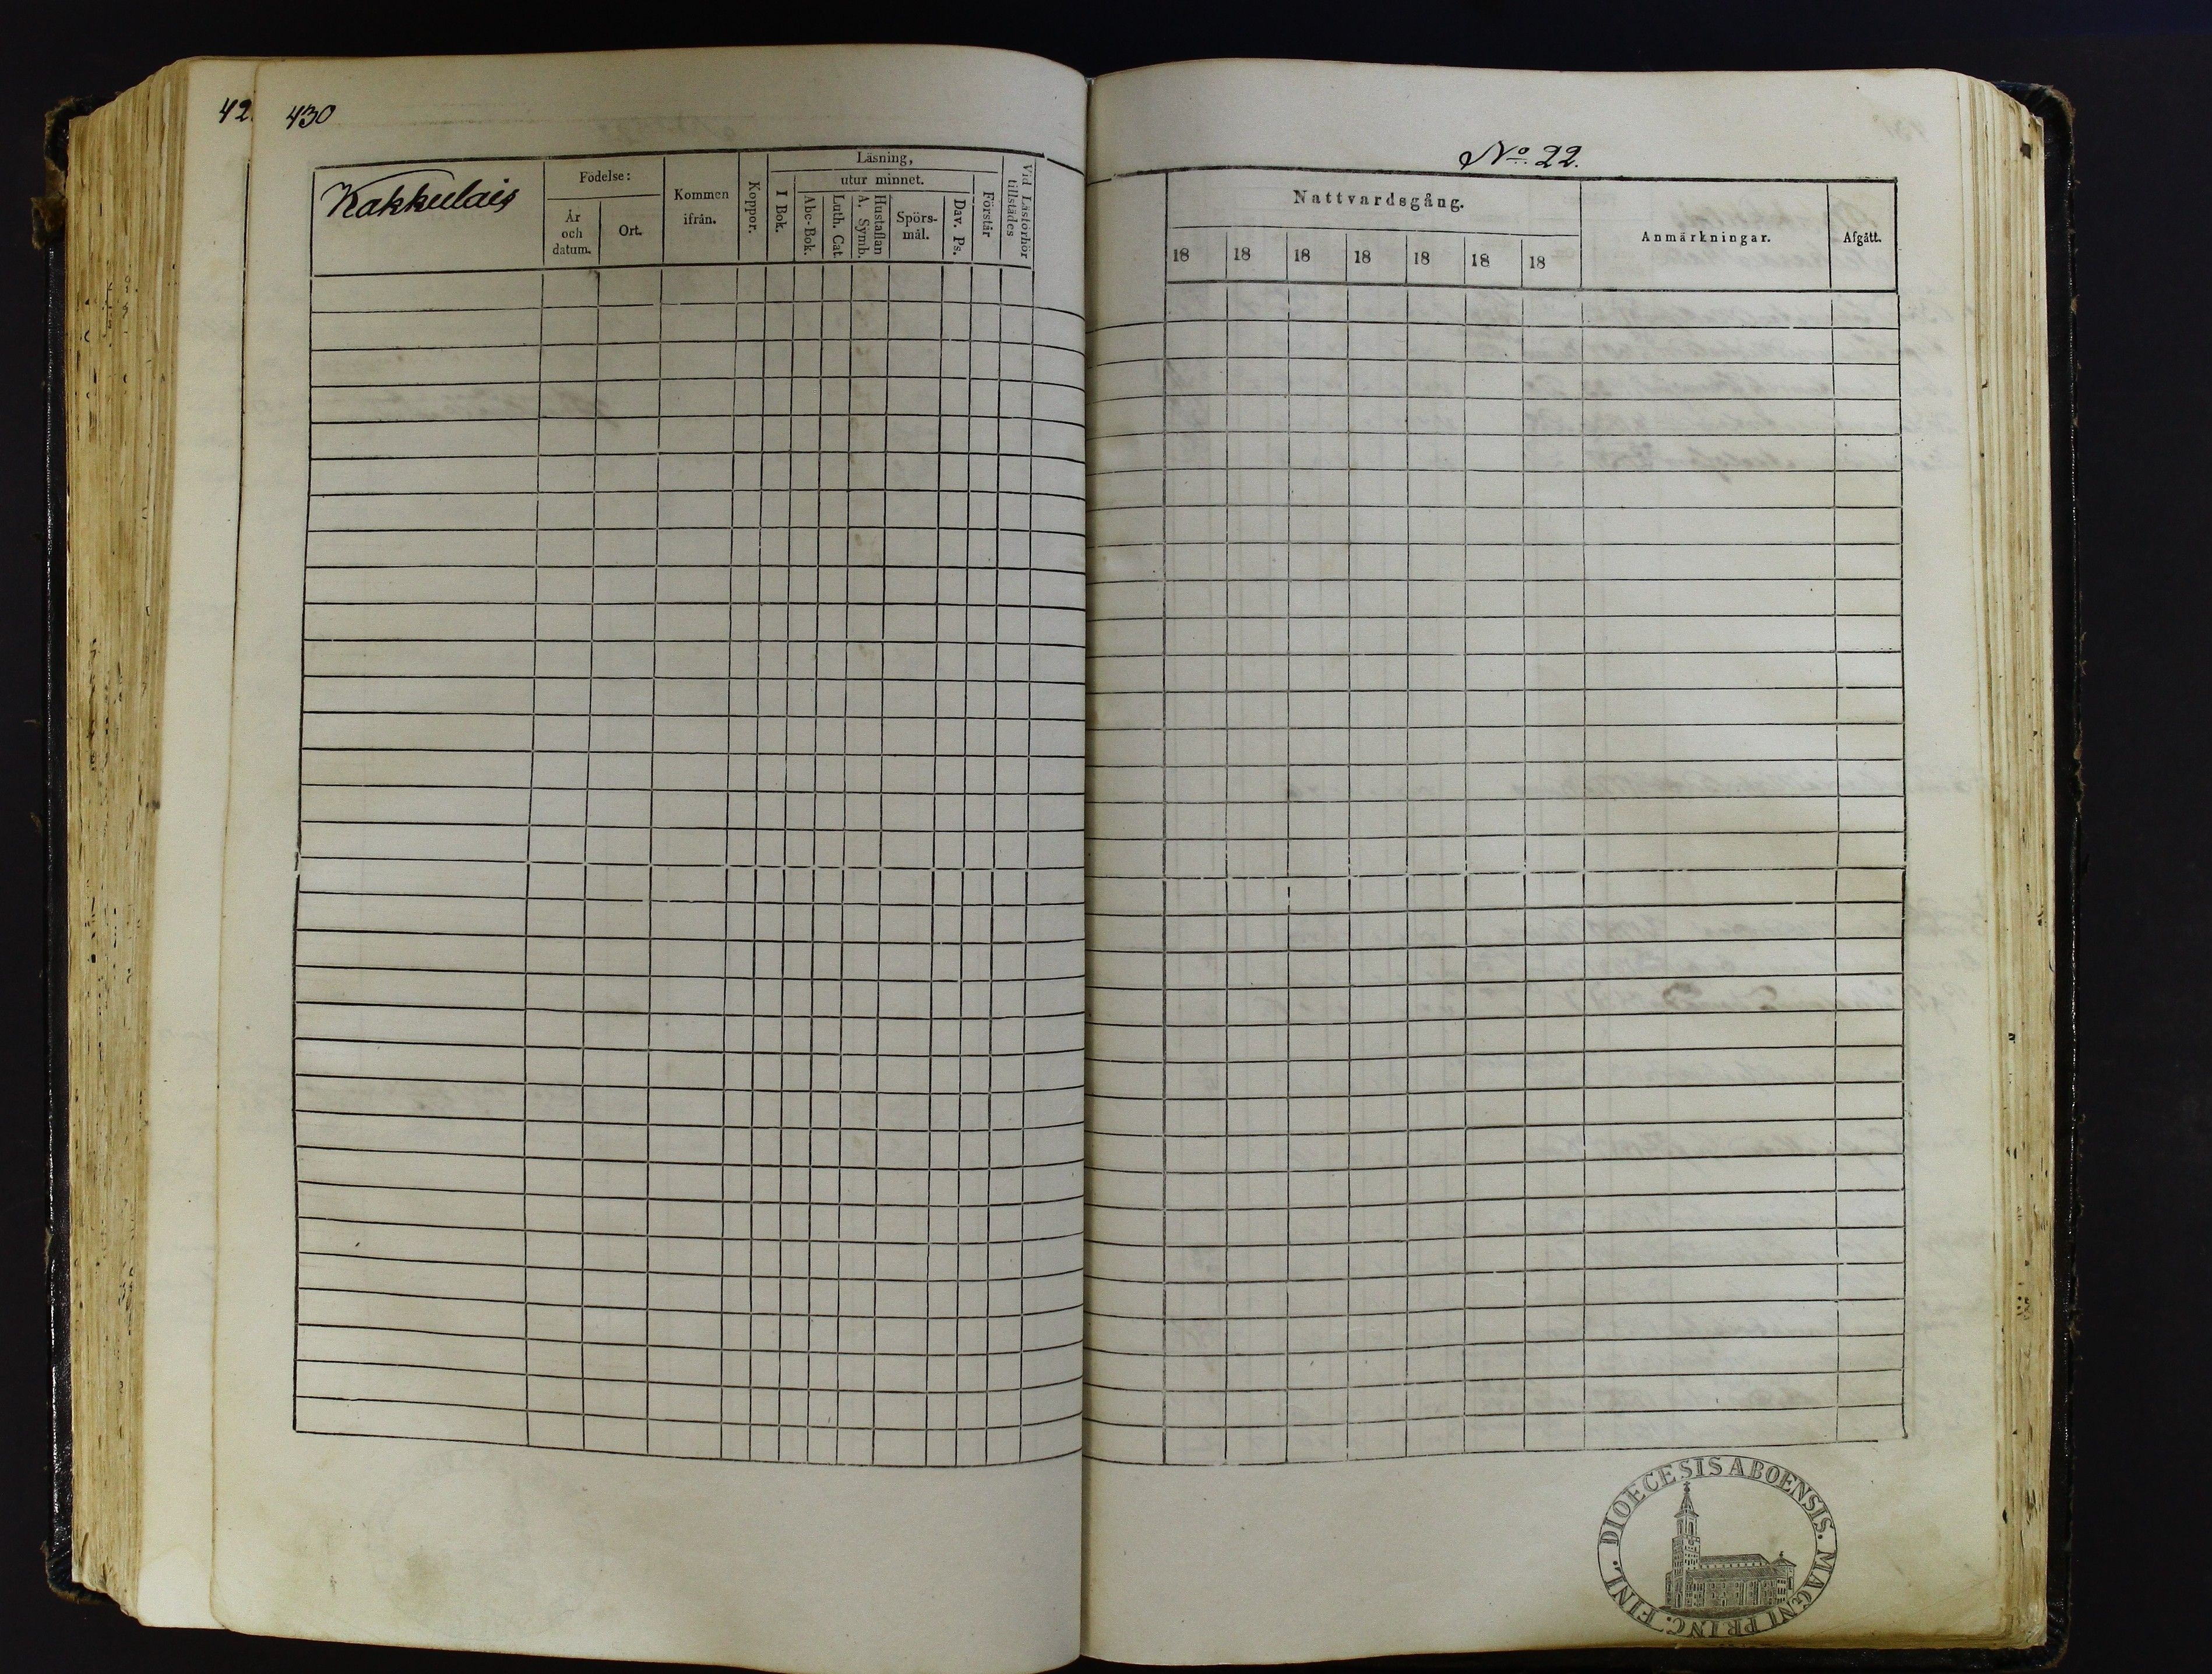 42
430
Kakkulais
Födelse:
År och datum.
Ort.
Kommen ifrån.
Koppor.
Läsning,
I Bok.
utur minnet.
Abc-Bok.
Luth. Cat
Hustaflan A. Symb.
Spörs-mål.
Dav. Ps.
Förstår
Vid Läsförhör tillstädes
No. 22.
Nattvardsgång.
18 18 18 18 18 18 18
Anmärkningar.
Afgått.
DIOECESIS ABOENSIS. MAGNI PRINC. FINL.